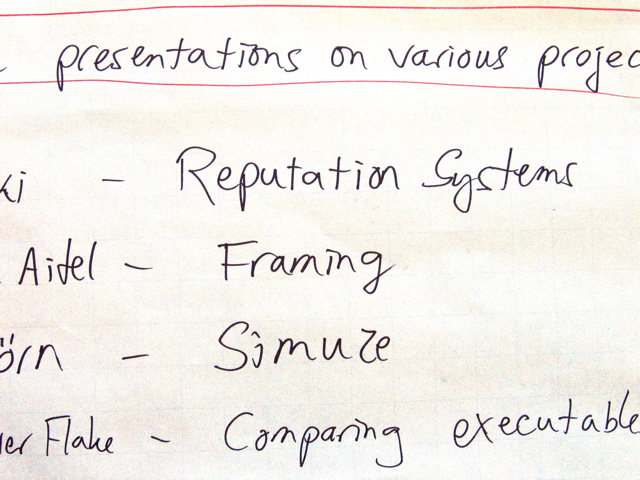 presentations on various projec
ki - Reputation Systems
Aitel - Framing
örn - Simuze
er Flake - Comparing executable